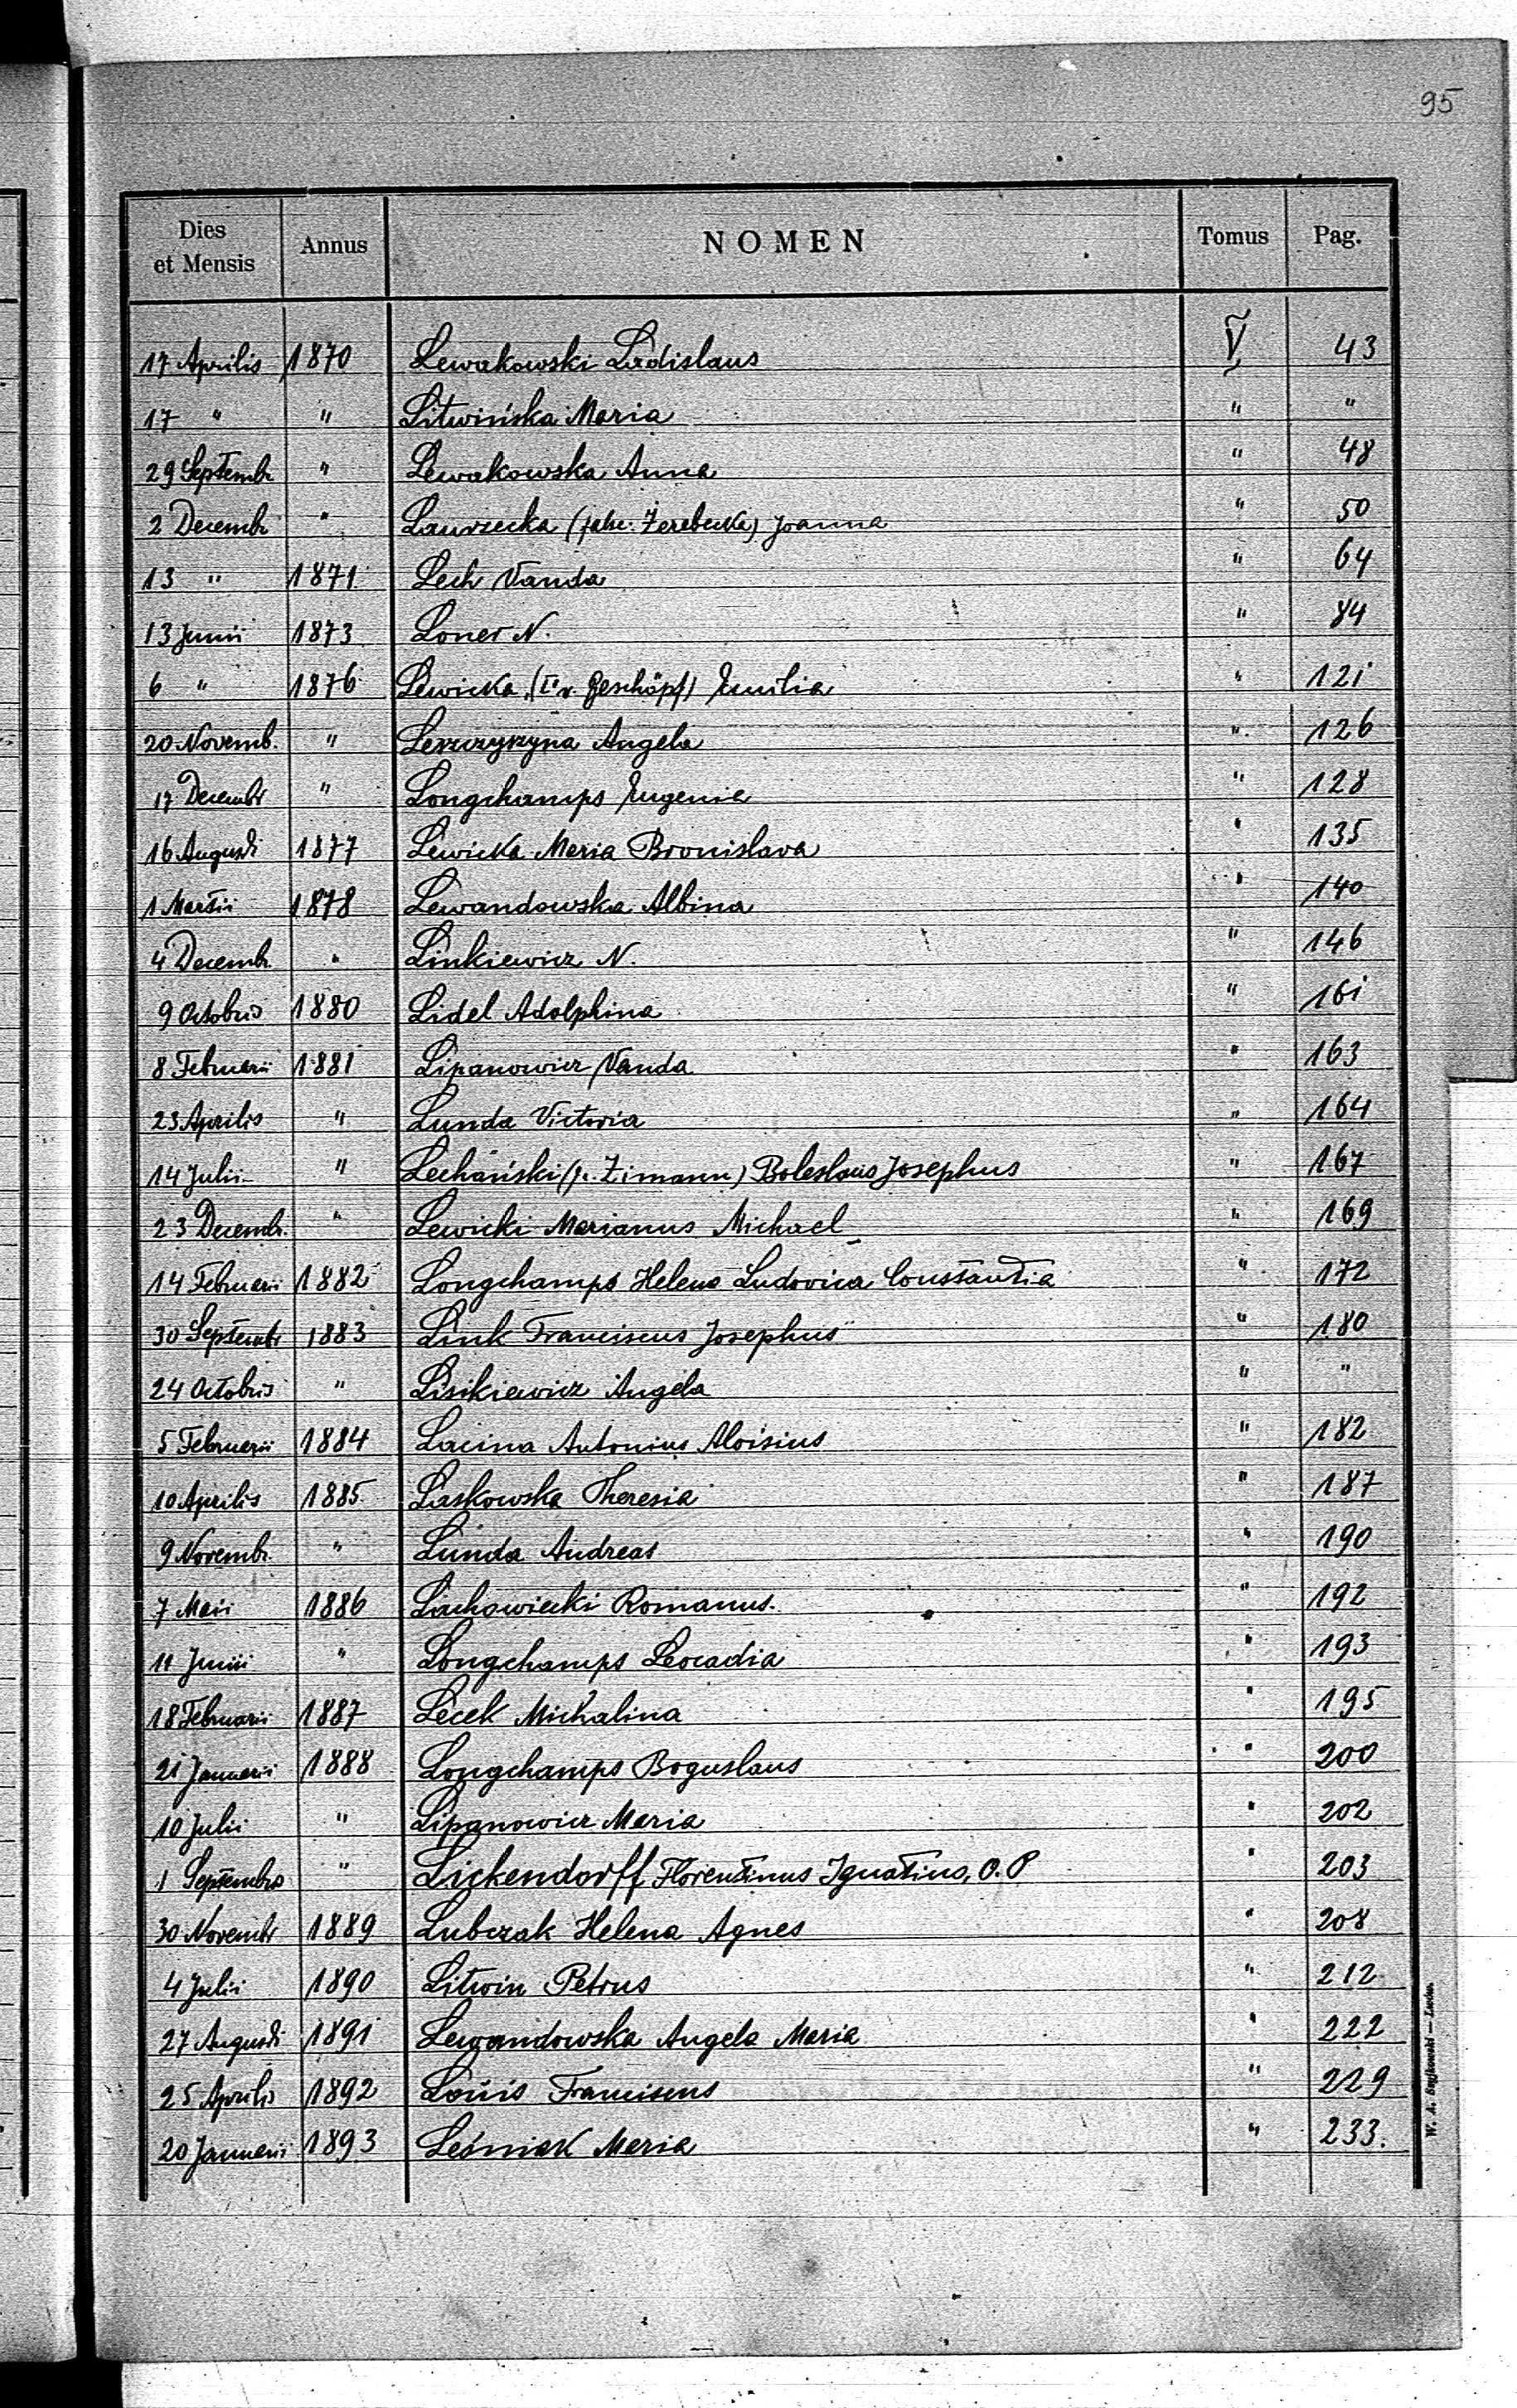 95
Dies et Mensis Annus NOMEN Tomus Pag.
17 Aprilis 1870 Lewakowski Ladislaus V 43
17 " " Litwińska Maria " "
29 Septembr " Lewakowska Anna " 48
2 Decembr " Laurzecka (false: Zerebecka) Joanna " 50
13 " 1871 Lech Vanda " 64
13 Junii 1873 Loner N. " 84
6 " 1876 Lewicka (I° v. Geschöpf) Emilia " 121
20 Novemb. " Angela " 126
17 Decembr " Longchamps Eugenia " 128
16 Augusti 1877 Lewicka Maria Bronislava " 135
1 Martii 1878 Lewandowska Albina " 140
4 Decembr. " Linkiewicz N. " 146
9 Octobris 1880 Lidel Adolphina " 161
8 Februarii 1881 Lipanowicz Vanda " 163
23 Aprilis " Lunda Victoria " 164
14 Julii " Lechański (v. Zimann) Boleslaus Josephus " 167
23 Decembr. " Lewicki Marianus Michael " 169
14 Februarii 1882 Longchamps Helena Ludovica Constantia " 172
30 Septembr 1883 Link Franciscus Josephus " 180
24 Octobris " Lisikiewicz Angela " "
5 Februarii 1884 Lacina Antonius Aloisius " 182
10 Aprilis 1885 Laskowska Theresia " 187
9 Novembr. " Lunda Andreas " 190
7 Maii 1886 Lachowiecki Romanus. " 192
11 Junii " Longchamps Leocadia " 193
18 Februarii 1887 Lecek Michalina " 195
21 Januarii 1888 Longchamps Boguslaus " 200
10 Julii " Lipanowicz Maria " 202
1 Septembris " Lickendorff Florentinus Ignatius, O.P " 203
30 Novembr 1889 Lubczak Helena Agnes " 208
4 Julii 1890 Litwin Petrus " 212
27 Augusti 1891 Lewandowska Angela Maria " 222
25 Aprilis 1892 Louis Franciscus " 229
20 Januarii 1893 Leśniak Maria " 233.